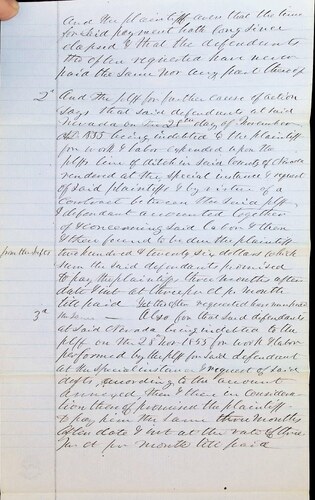 And the plaintiff avers that the time
for said payment hath long since
elapsed & that the defendants
tho often requested have never
paid the same nor any part thereof
2d And the plff for further cause of action
says that said defendants at said
Nevada on the 28th day of November
1853 being indebted to the plaintiff
for work & labor expended upon the
plffs line of ditch in said County of Nevada
rendered at the special instance & request
of said plaintiff & by virtue of a
contract between the said plff
& defendant accounted together
of & concerning said labor & then
& there found to be due the plaintiff
two hundred & seventy six dollars which
sum the said defendants promised
to pay the plaintiff three months after
date & int at three per ct pr month
till paid Yet tho often requested have
3d Also for that said defendants
at said Nevada being indebted to the
plff on the 28 Nov 1853 for work & labor
performed by the plff for said defendant
at the special instance & request of said
defts, according to the account
annexed, then & there in considera-
tion thereof promised the plaintiff
to pay him the same three months
after date & int at the rate of three
per ct pr month till paid